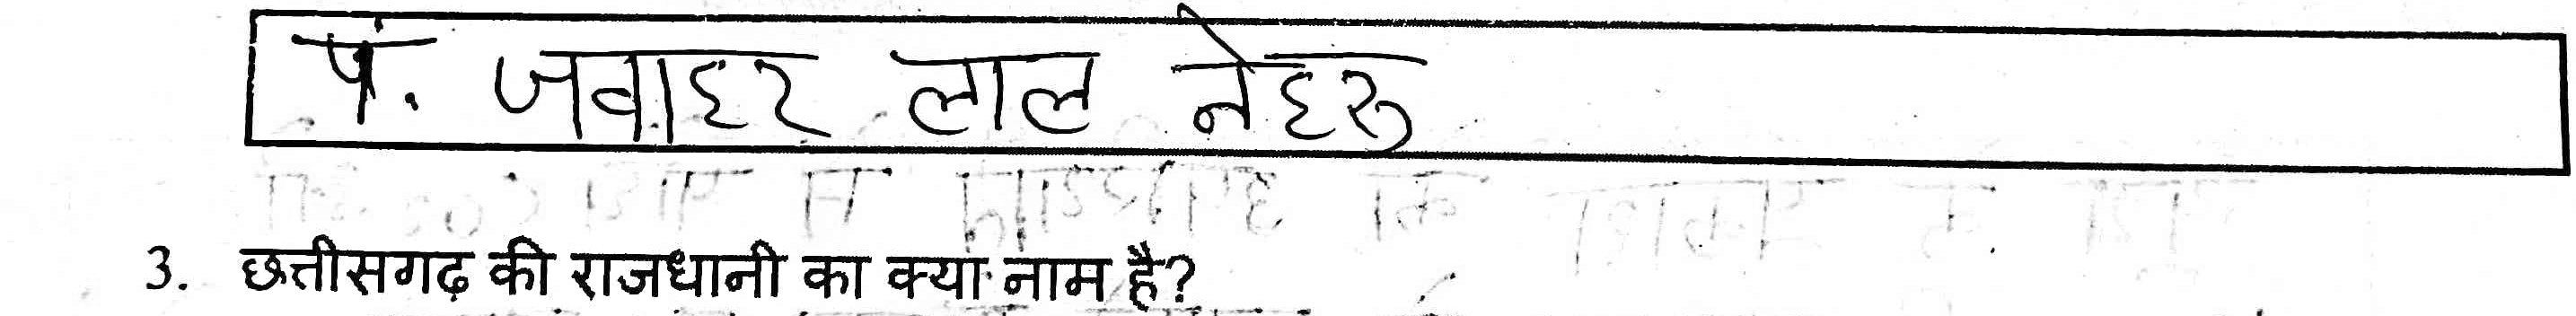 पं. जवाहर लाल नेहरु
3. छत्तीसगढ़ की राजधानी का क्या नाम है?